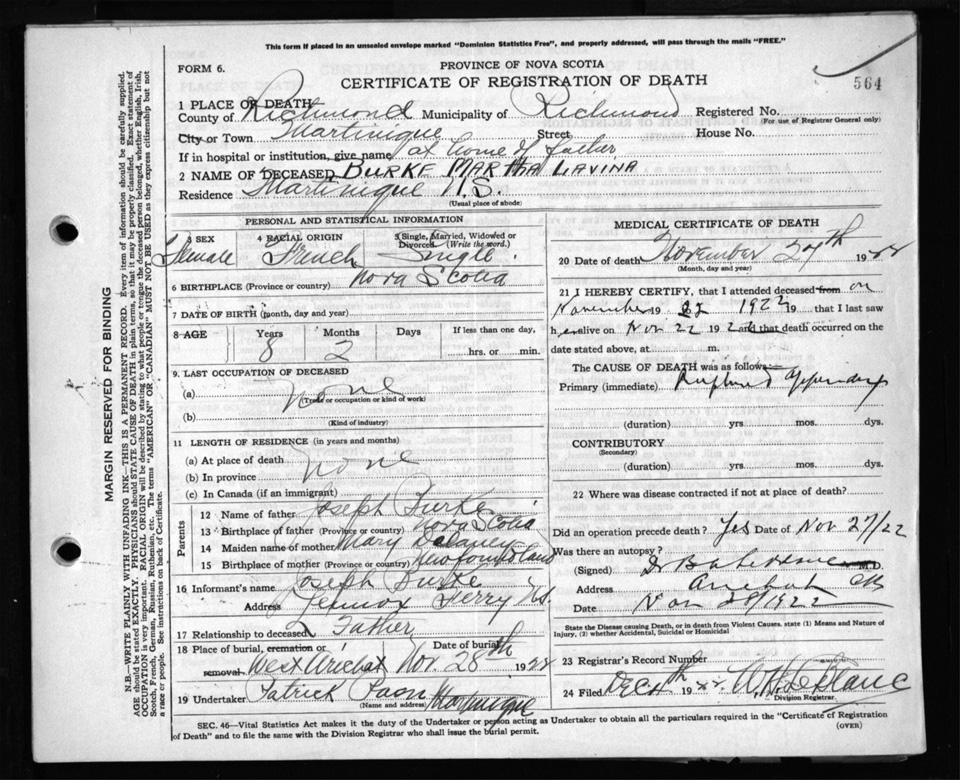 This form if placed in an unsealed envelope marked "Dominion Statistics Free", and properly addressed, will pass through the mails "FREE."
FORM 6.
PROVINCE OF NOVA SCOTIA
CERTIFICATE OF REGISTRATION OF DEATH
564
1 PLACE OF DEATH
County of Richmond Municipality of Richmond Registered No.
(For use of Registrar General only)
City or Town Martinique Street House No.
If in hospital or institution, give name at home of father
2 NAME OF DECEASED BURKE MARTHA LAVINA
Residence Martinique N.S.
(Usual place of abode)
PERSONAL AND STATISTICAL INFORMATION
3 SEX Female 4 RACIAL ORIGIN French 5 Single, Married, Widowed or Divorced (Write the word.) Single
6 BIRTHPLACE (Province or country) Nova Scotia
7 DATE OF BIRTH (month, day and year)
8 AGE Years 8 Months 2 Days If less than one day, hrs. or min.
9. LAST OCCUPATION OF DECEASED
(a) None
(Trade or occupation or kind of work)
(b)
(Kind of industry)
11 LENGTH OF RESIDENCE (in years and months)
(a) At place of death None
(b) In province
(c) In Canada (if an immigrant)
Parents
12 Name of father Joseph Burke
13 Birthplace of father (Province or country) Nova Scotia
14 Maiden name of mother Mary Delaney
15 Birthplace of mother (Province or country) Newfoundland
16 Informant's name Joseph Burke
Address Lennox Ferry N.S.
17 Relationship to deceased Father
18 Place of burial, cremation or removal West Arichat Date of burial Nov. 28th 1922
19 Undertaker Patrick Martinique
(Name and address)
MEDICAL CERTIFICATE OF DEATH
20 Date of death November 27th 1922
(Month, day and year)
21 I HEREBY CERTIFY, that I attended deceased from on
November 19 22 1922 19 that I last saw
h er alive on Nov 22 192 and that death occurred on the
date stated above, at m.
The CAUSE OF DEATH was as follows
Primary (immediate) Ruptured Appendix
(duration) yrs. mos. dys.
CONTRIBUTORY
(Secondary)
(duration) yrs. mos. dys.
22 Where was disease contracted if not at place of death?
Did an operation precede death? Yes Date of Nov 27/22
Was there an autopsy?
(Signed) Dr M.D.
Address Arichat CB
Date Nov 1922
State the Disease causing Death, or in death from Violent Causes, state (1) Means and Nature of Injury, (2) whether Accidental, Suicidal or Homicidal
23 Registrar's Record Number
24 Filed DEC 4th 1922 LeBlanc
Division Registrar.
SEC. 46—Vital Statistics Act makes it the duty of the Undertaker or person acting as Undertaker to obtain all the particulars required in the "Certificate of Registration
of Death" and to file the same with the Division Registrar who shall issue the burial permit.
(OVER)
MARGIN RESERVED FOR BINDING
N.B.—WRITE PLAINLY WITH UNFADING INK—THIS IS A PERMANENT RECORD. Every item of information should be carefully supplied.
AGE should be stated EXACTLY. PHYSICIANS should STATE CAUSE OF DEATH in plain terms, so that it may be properly classified. Exact statement of
OCCUPATION is very important. RACIAL ORIGIN will be described by stating to what people or tongue the deceased person belonged, whether English, Irish,
Scotch, French, German, Russian, Ruthenian, etc. The terms "AMERICAN" or "CANADIAN" MUST NOT BE USED as they express citizenship but not
a race or people. See instructions on back of Certificate.